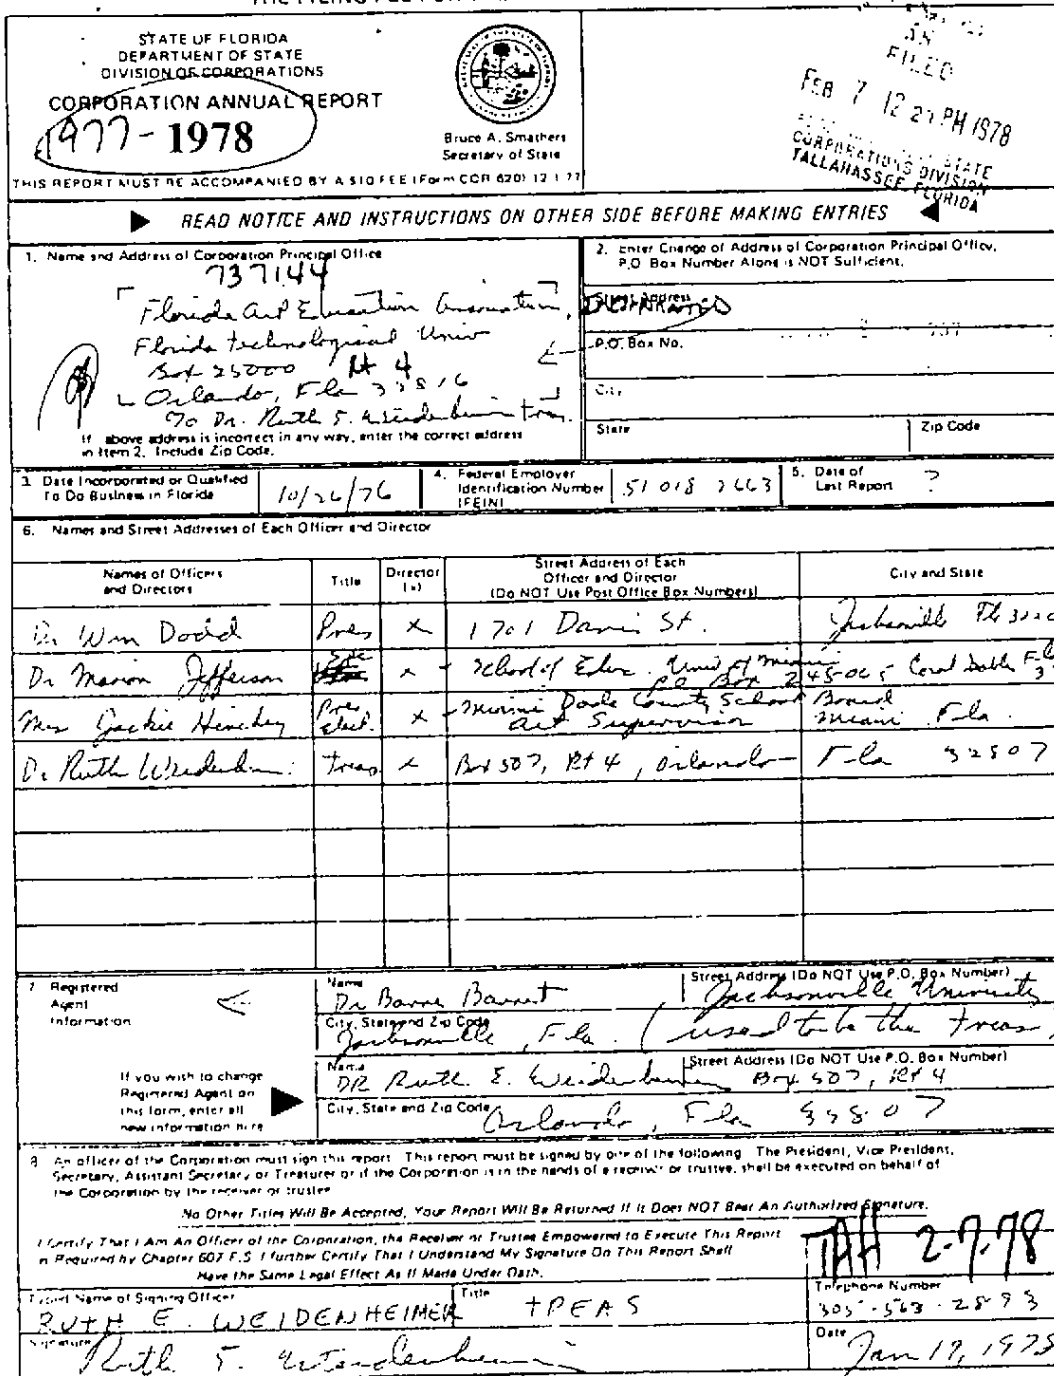 STATE OF FLORIDA
DEPARTMENT OF STATE
DIVISION OF CORPORATIONS
CORPORATION ANNUAL REPORT
1977-1978
Bruce A. Smathers
Secretary of State
THIS REPORT MUST BE ACCOMPANIED BY A $10 FEE (Form COR 620) 12 1 77
FILED
FEB 7 12 27 PM 1978
STATE
CORPORATIONS DIVISION
TALLAHASSEE, FLORIDA
READ NOTICE AND INSTRUCTIONS ON OTHER SIDE BEFORE MAKING ENTRIES
1. Name and Address of Corporation Principal Office
737144
Florida Art Education Association, INCORPORATED
Florida Technological Univ
Box 25000
Orlando, Fla 32816
% Dr. Ruth E. Weidenheimer Treas.
If above address is incorrect in any way, enter the correct address
in Item 2. Include Zip Code.
2. Enter Change of Address of Corporation Principal Office,
P.O. Box Number Alone is NOT Sufficient.
Street Address
P.O. Box No.
City
State
Zip Code
3. Date Incorporated or Qualified
To Do Business in Florida
10/26/76
4. Federal Employer
Identification Number
(FEIN)
51 018 7663
5. Date of
Last Report
?
6. Names and Street Addresses of Each Officer and Director
Names of Officers
and Directors
Title
Director
(x)
Street Address of Each
Officer and Director
(Do NOT Use Post Office Box Numbers)
City and State
Dr Wm Dodd Pres x 1701 Davis St. Jacksonville Fla
Dr Marion Jefferson Sec x School of Educ. Univ of Miami
PO Box 245-065 Coral Gables Fla
Mrs Jackie Hinchey Pres Elect. x Miami Dade County School Board
Art Supervisor Miami Fla.
Dr Ruth Weidenheimer Treas x Box 507, Rt 4, Orlando Fla 32807
7 Registered
Agent
Information
Name
Dr Barnett
Street Address (Do NOT Use P.O. Box Number)
Jacksonville University
City, State and Zip Code
Jacksonville, Fla. (used to be the Treas)
If you wish to change
Registered Agent on
this form, enter all
new information here
Name
DR Ruth E. Weidenheimer
Street Address (Do NOT Use P.O. Box Number)
Box 507, Rt 4
City, State and Zip Code
Orlando, Fla 32807
8 An officer of the Corporation must sign this report This report must be signed by one of the following The President, Vice President,
Secretary, Assistant Secretary or Treasurer or if the Corporation is in the hands of a receiver or trustee, shall be executed on behalf of
the Corporation by the receiver or trustee
No Other Titles Will Be Accepted, Your Report Will Be Returned If It Does NOT Bear An Authorized Signature.
I Certify That I Am An Officer of the Corporation, the Receiver or Trustee Empowered to Execute This Report
as Required by Chapter 607 F.S. I further Certify That I Understand My Signature On This Report Shall
Have the Same Legal Effect As If Made Under Oath.
TAH 2-7-78
Typed Name of Signing Officer
RUTH E. WEIDENHEIMER
Title
TREAS
Telephone Number
305-563-2893
Signature
Ruth E. Weidenheimer
Date
Jan 19, 1978